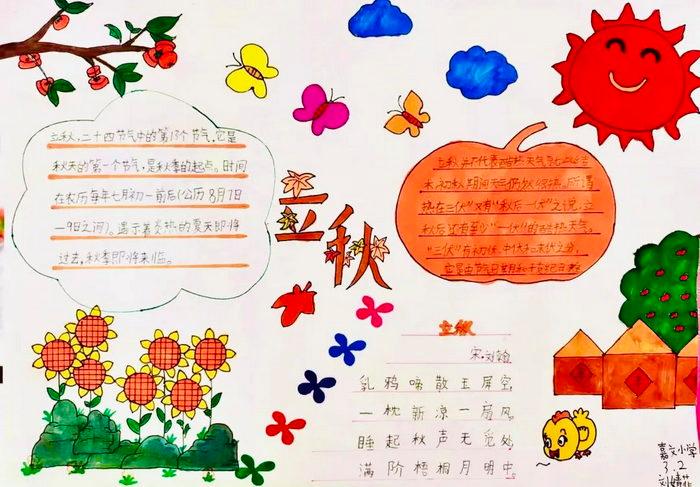 立秋,二十四节气中的第13个节气,它是
秋天的第一个节气,是秋季的起点。时间
在农历每年七月初一前后(公历8月7日
—9日之间)。预示着炎热的夏天即将
过去,秋季即将来临。
立秋
立秋并不代表酷热天气
末,初秋期间天气仍然很热。所谓
热在三伏"又有"秋后一伏"之说,立
秋后还有至少"一伏"的酷热天气。
"三伏"有初伏、中伏和末伏之分,
立秋
宋·刘翰
乳鸦啼散玉屏空,
一枕新凉一扇风。
睡起秋声无觅处,
满阶梧桐月明中。
嘉文小学
3.2
刘